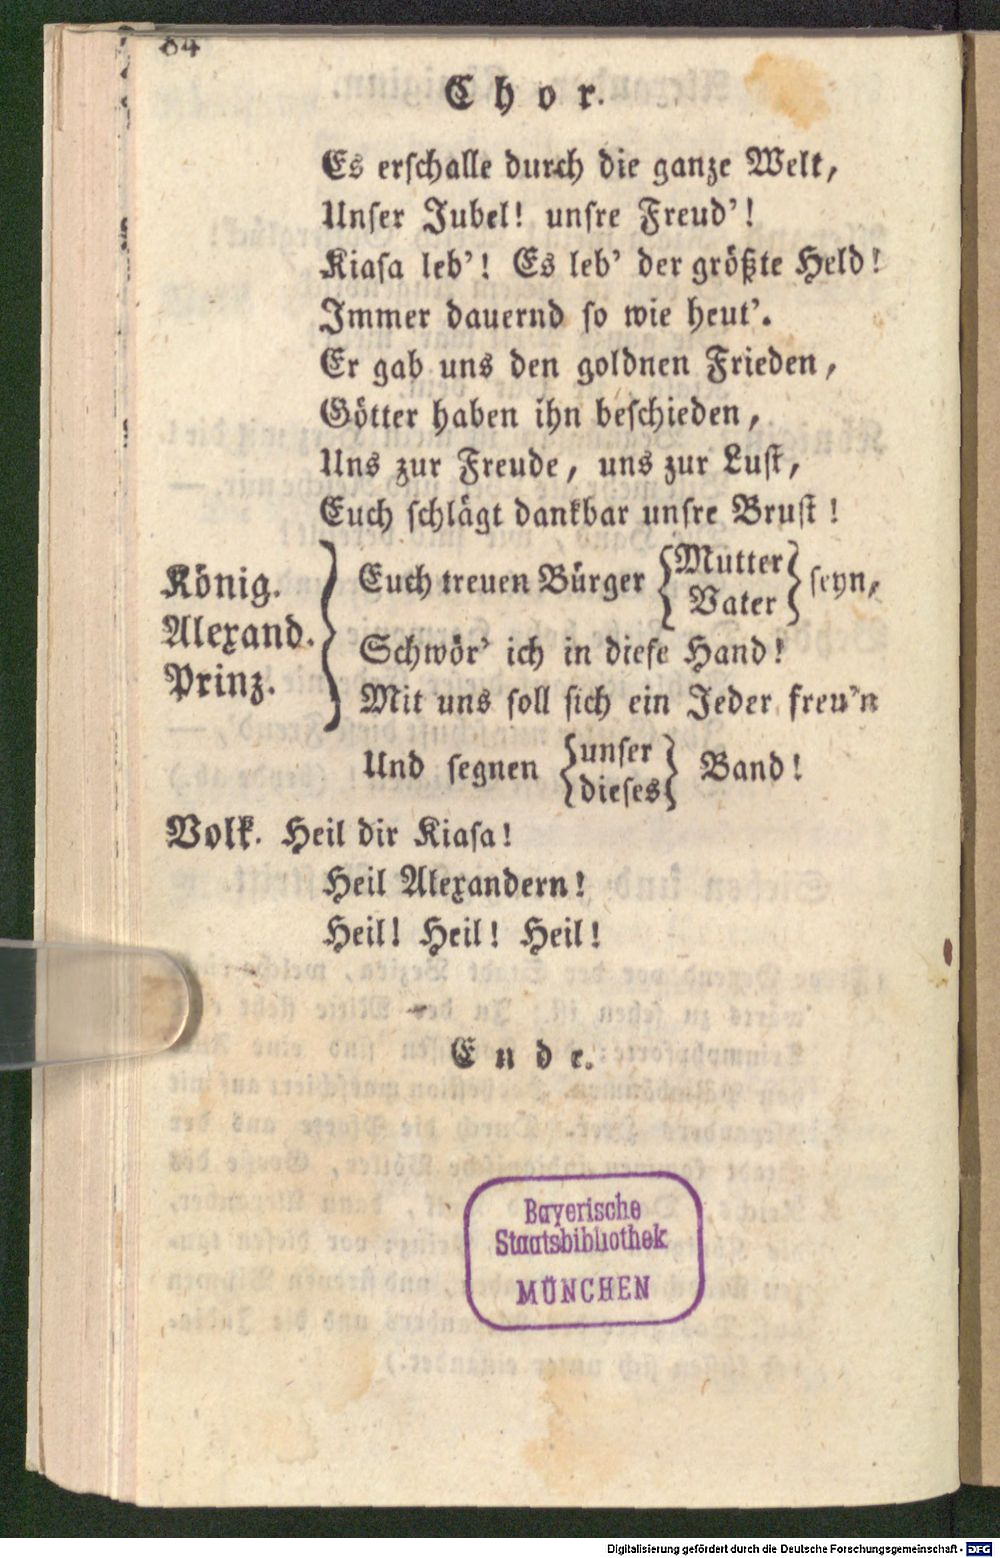 84
Chor.
Es erschalle durch die ganze Welt,
Unser Jubel! unsre Freud'!
Kiasa leb'! Es leb' der größte Held!
Immer dauernd so wie heut'.
Er gab uns den goldnen Frieden,
Götter haben ihn beschieden,
Uns zur Freude, uns zur Lust,
Euch schlägt dankbar unsre Brust!
König.
Alexand.
Prinz.
Euch treuen Bürger {Mutter} seyn,
{Vater}
Schwör' ich in diese Hand!
Mit uns soll sich ein Jeder freu'n
Und segnen {unser} Band!
{dieses}
Volk. Heil dir Kiasa!
Heil Alexandern!
Heil! Heil! Heil!
Ende.
Bayerische
Staatsbibliothek
MÜNCHEN
Digitalisierung gefördert durch die Deutsche Forschungsgemeinschaft - DFG